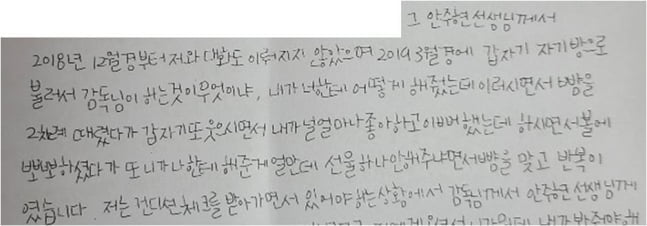 그 안주현선생님께서
2018년 12월경부터 저와 대화도 이루어지지 않았으며 2019 3월경에 갑자기 자기방으로
불러서 감독님이 하는것이 무엇이냐, 내가 너한테 어떻게 해줬는데 이러시면서 뺨을
2차례 때렸다가 갑자기 또 웃으시면서 내가 널 얼마나 좋아하고 이뻐했는데 하시면서 볼에
뽀뽀하셨다가 또 니가 나한테 해준게 얼만데 선물하나 안해주냐면서 뺨을 맞고 반복이
였습니다. 저는 컨디션체크를 받아가면서 있어야 하는 상황에서 감독님께서 안주현선생님께